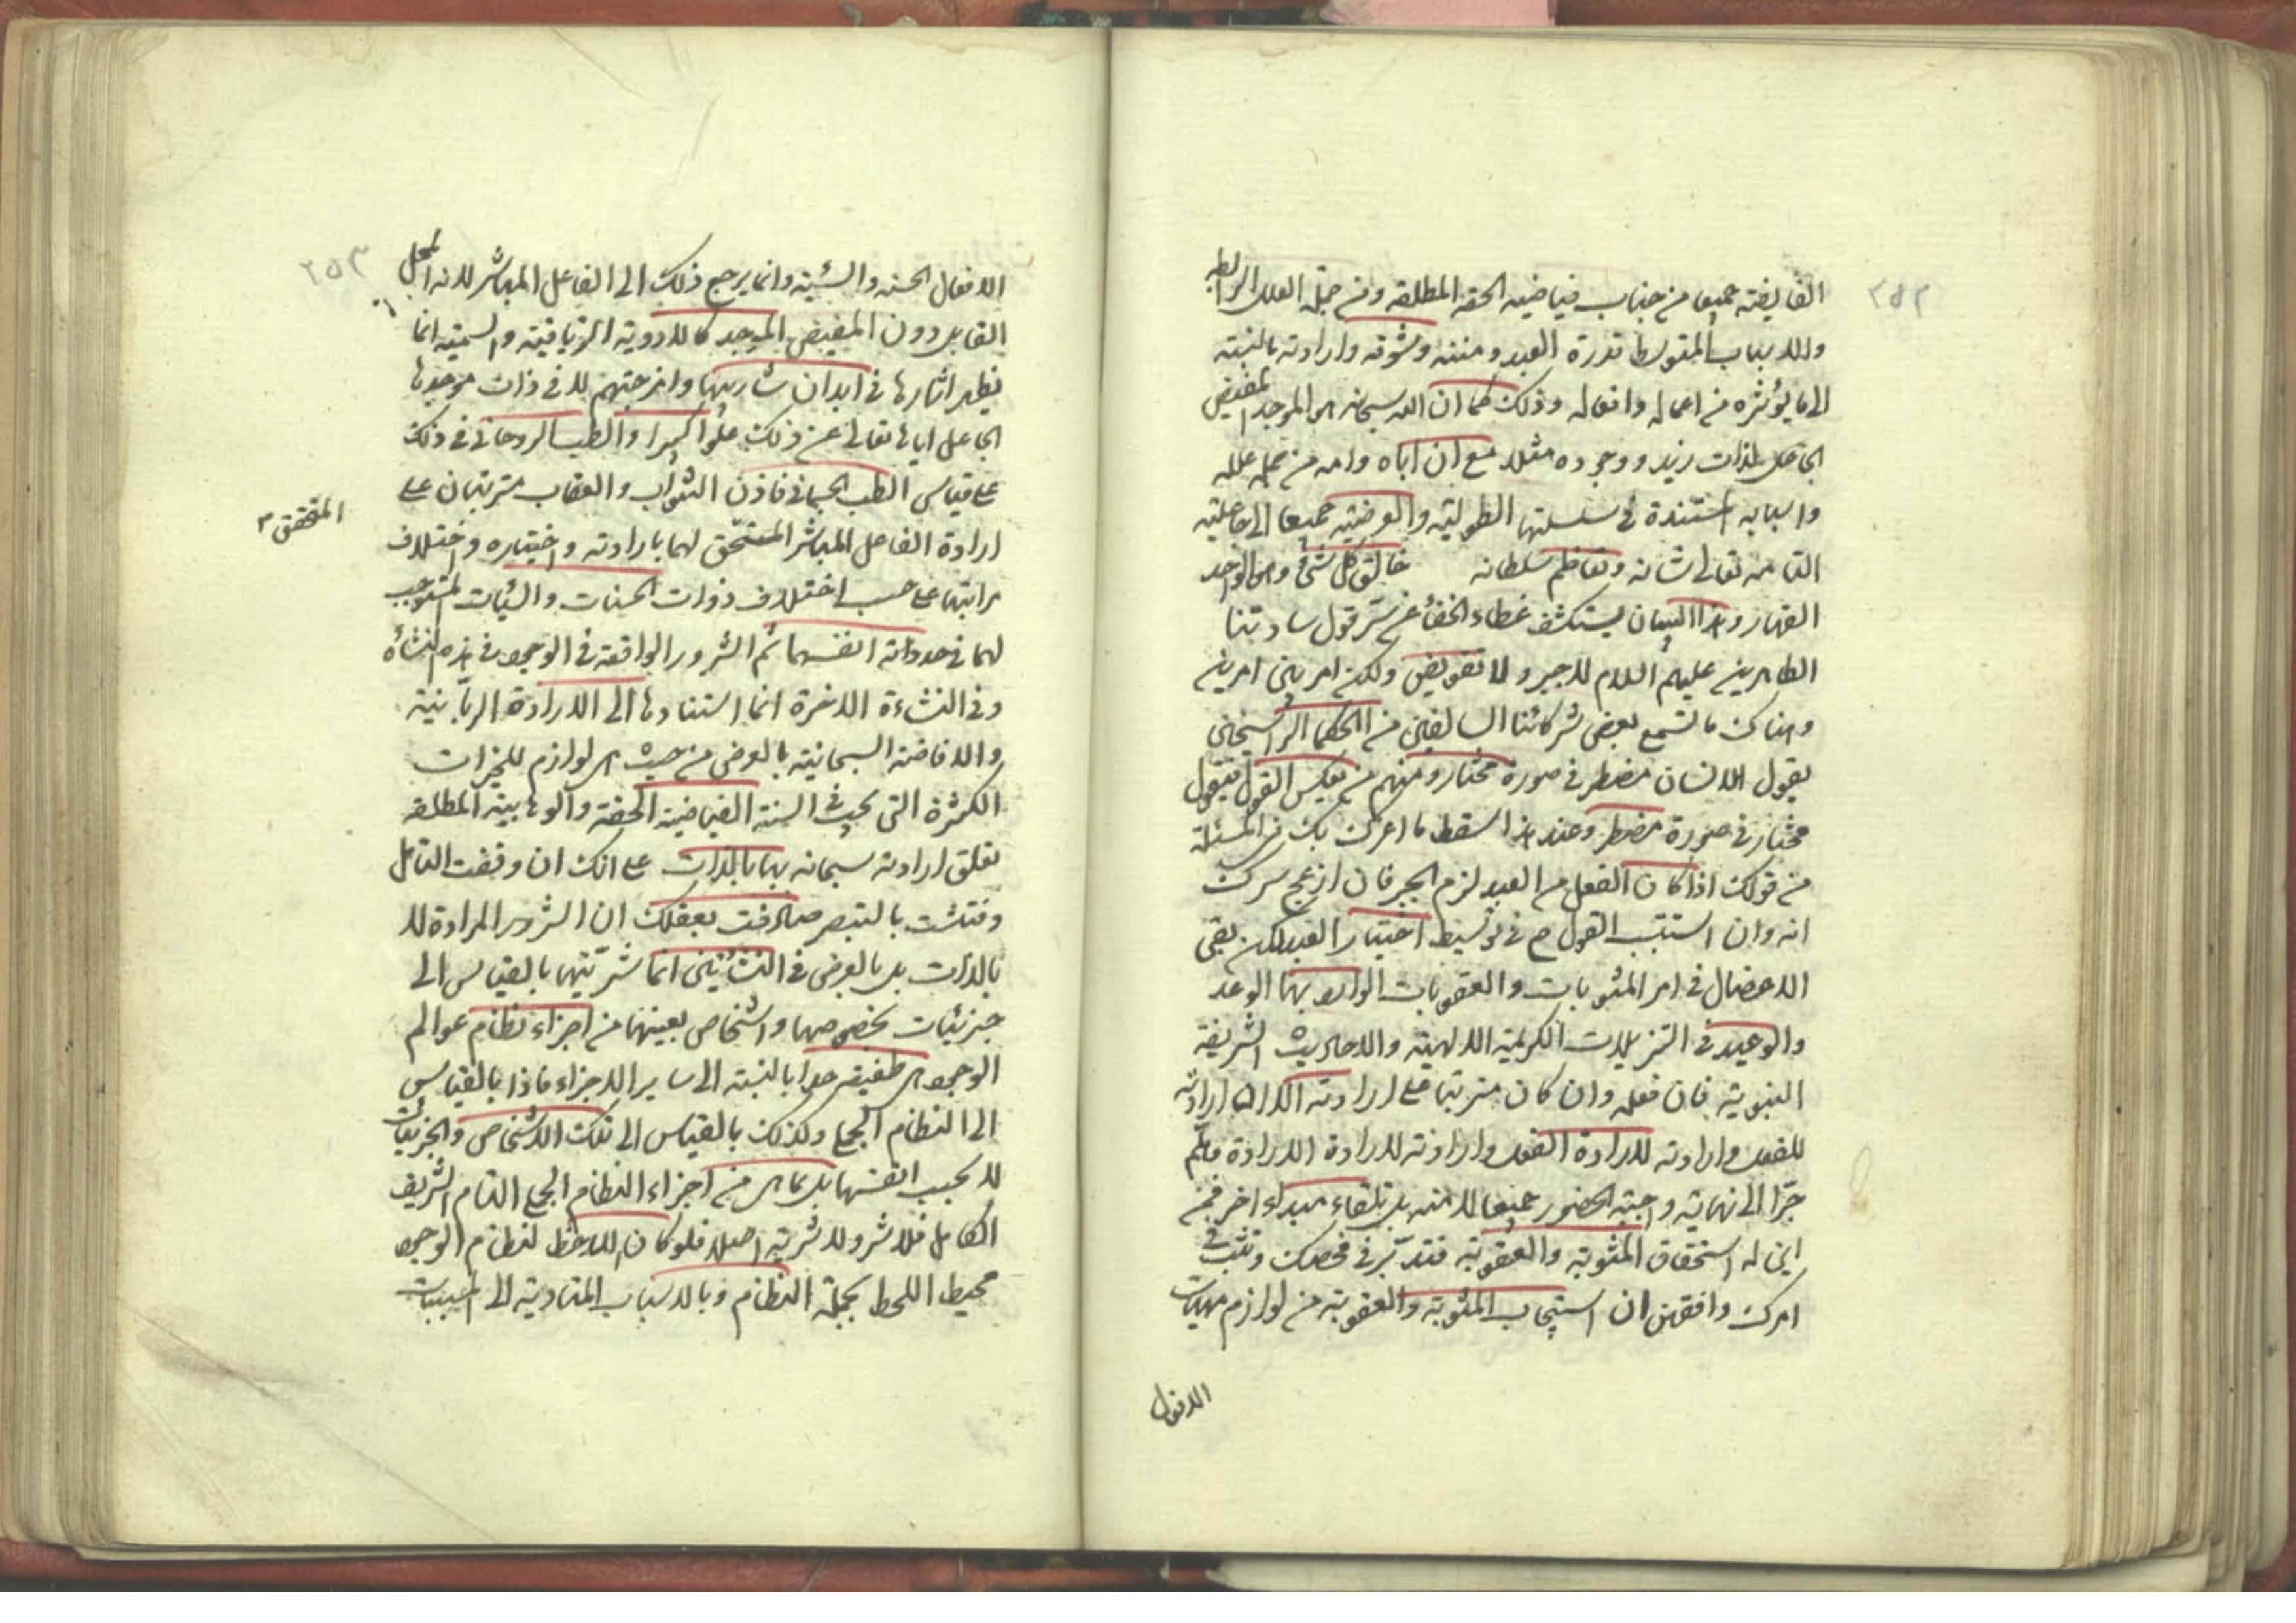 ٢٥٢
الفايضة جميعا من جناب فياضيته الحقة المطلقة ومن جملة العلل الرابطة
والاسباب المتوسطة قدرة العبد ومنته وشوقه وارادته بالنسبة
الى ما يؤثره من اعماله وافعاله وذلك كما ان الله سبحانه هو الموجد المفيض
الجاعل لذات زيد ووجوده مثلا مع ان اباه وامه من جملة علله
واسبابه المستندة في سلسلتها الطولية والعرضية جميعا الى جاعليته
التامة تعالى شانه وتعاظم سلطانه خالق كل شئ وهو الواحد
القهار وهذا البيان يستكشف غطاء الخفاء عن سر قول سادتنا
الطاهرين عليهم السلام لا جبر ولا تفويض ولكن امر بين امرين
وهناك ما تسمع بعض شركائنا السالفين من الحكماء الراسخين
يقول الانسان مضطر في صورة مختار ومنهم من يعكس القول فيقول
مختار في صورة مضطر وعند هذا سقط ما اعرك بك من المسئلة
من قولك اذا كان الفعل من العبد لزم الجبر فان ازعج سرك
انه وان استتب القول ح في توسيط اختيار العبد لكن بقى
الاعضال في امر المثوبات والعقوبات الوارد بها الوعد
والوعيد في التنزيلات الكريمة الالهية والاحاديث الشريفة
النبوية فان فعله وان كان مترتبا على ارادته الا ان ارادته
للفعل وارادته لارادة الفعل وارادته لارادة الارادة وهلم
جرا الى نهاية واجبة الحضور جميعا لا منه بل من تلقاء مبداء اخر فمن
اين له استحقاق المثوبة والعقوبة فتدبر في فحصك وتثبت في
امرك وافقهن ان استيجاب المثوبة والعقوبة من لوازم مهيات
الافعال
٢٥٣
الافعال الحسنة والسيئة وانما يرجع ذلك الى الفاعل المباشر لانه المحل
القابل دون المفيض الموجد كالادوية الترياقية والسمية انما
يظهر اثارها في ابدان شاربيها وامزجتهم لا في ذات موجدها
الجاعل اياها تعالى عن ذلك علوا كبيرا والطب الروحاني في ذلك
على قياس الطب الجسماني فاذن الثواب والعقاب مترتبان على
ارادة الفاعل المباشر المستحق لهما بارادته واختياره واختلاف
المتحقق ٣
مراتبهما على حسب اختلاف ذوات الحسنات والسيئات المستوجب
لهما في حد ذاته انفسهما ثم الشرور الواقعة في الوجود في هذه النشأة
وفي النشاءة الاخرة انما استنادها الى الارادة الربانية
والافاضة السبحانية بالعرض من حيث هي لوازم للخيرات
الكثيرة التي يجب في السنة الفياضية الحقة والوهابية المطلقة
تعلق ارادته سبحانه بها بالذات على انك ان وقفت التامل
وفتشت بالتبصر صادفت بعقلك ان الشرور المرادة لا
بالذات بل بالعرض في النشأتين انما شريتها بالقياس الى
جزئيات بخصوصها واشخاص بعينها من اجزاء نظام عوالم
الوجود هي طفيفة جدا بالنسبة الى ساير الاجزاء فاذا بالقياس
الى النظام الجملي وكذلك بالقياس الى تلك الاشخاص والجزئيات
لا بحسب انفسها بل بما هي من اجزاء النظام الجملي التام الشريف
الكامل فلا شر ولا شرية اصلا فلو كان اللاحظ لنظام الوجود
محيط اللحظ بجملة النظام وبالاسباب المتادية الى المسببات